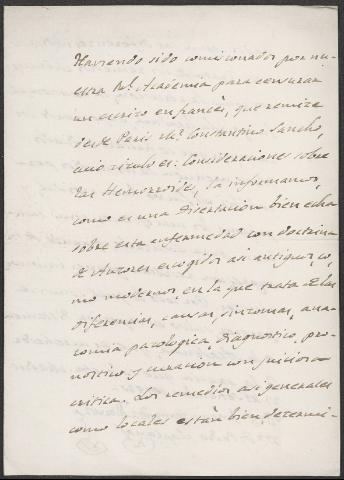 Haviendo sido comicionados por nu-
estra Rl. Academia para censurar
un escrito en francés, que remite
desde Paris Dn. Constantino Sancho,
cuio título es: Consideraciones sobre
las Hemorroides, la informamos,
como es una Disertacion bien echa
sobre esta enfermedad con doctrina
de Autores escogidos asi antiguos, co-
mo modernos, en la que trata de las
diferencias, causas, sintomas, ana-
tomia patologica, diagnostico, pro-
nostico y curacion con juiciosa
critica. Los remedios asi generales
como locales están bien determi-